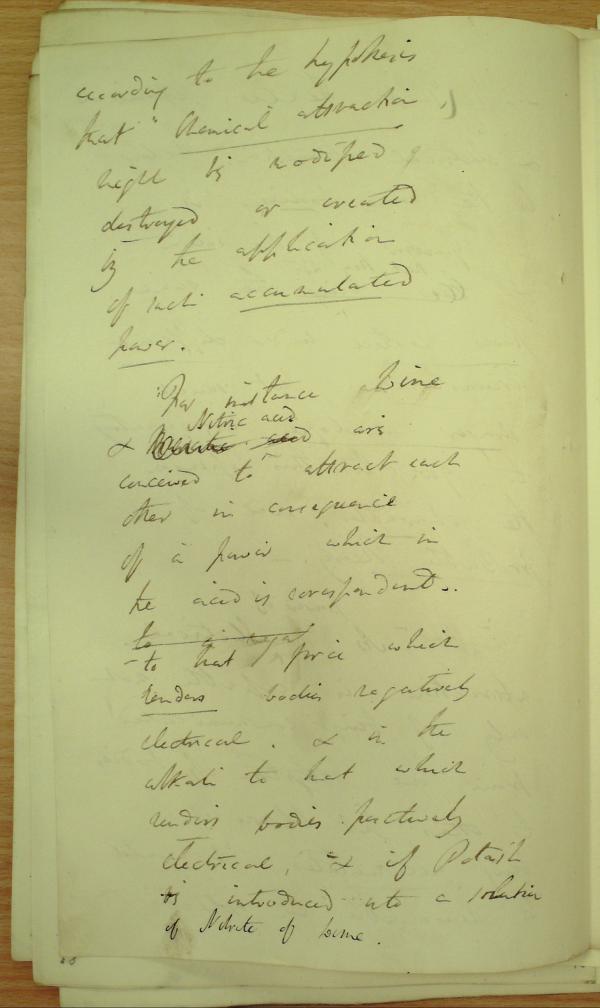 according to the hypothesis
that " Chemical attraction ")
might be modified,
destroyed or created
by the application
of such accumulated
power.
"For instance Lime
& Nitric acid are
conceived to attract each
other in consequence
of a power which in
the acid is correspondent
to a negat
- to that force which
renders bodies negatively
electrical. & in the
alkali to that which
renders bodies positively
electrical, & if Potash
be introduced into a solution
of Nitrate of Lime.